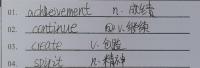 01. achievement n. 成绩
02. continue v. 继续
03. create v. 创造
04. spirit n. 精神